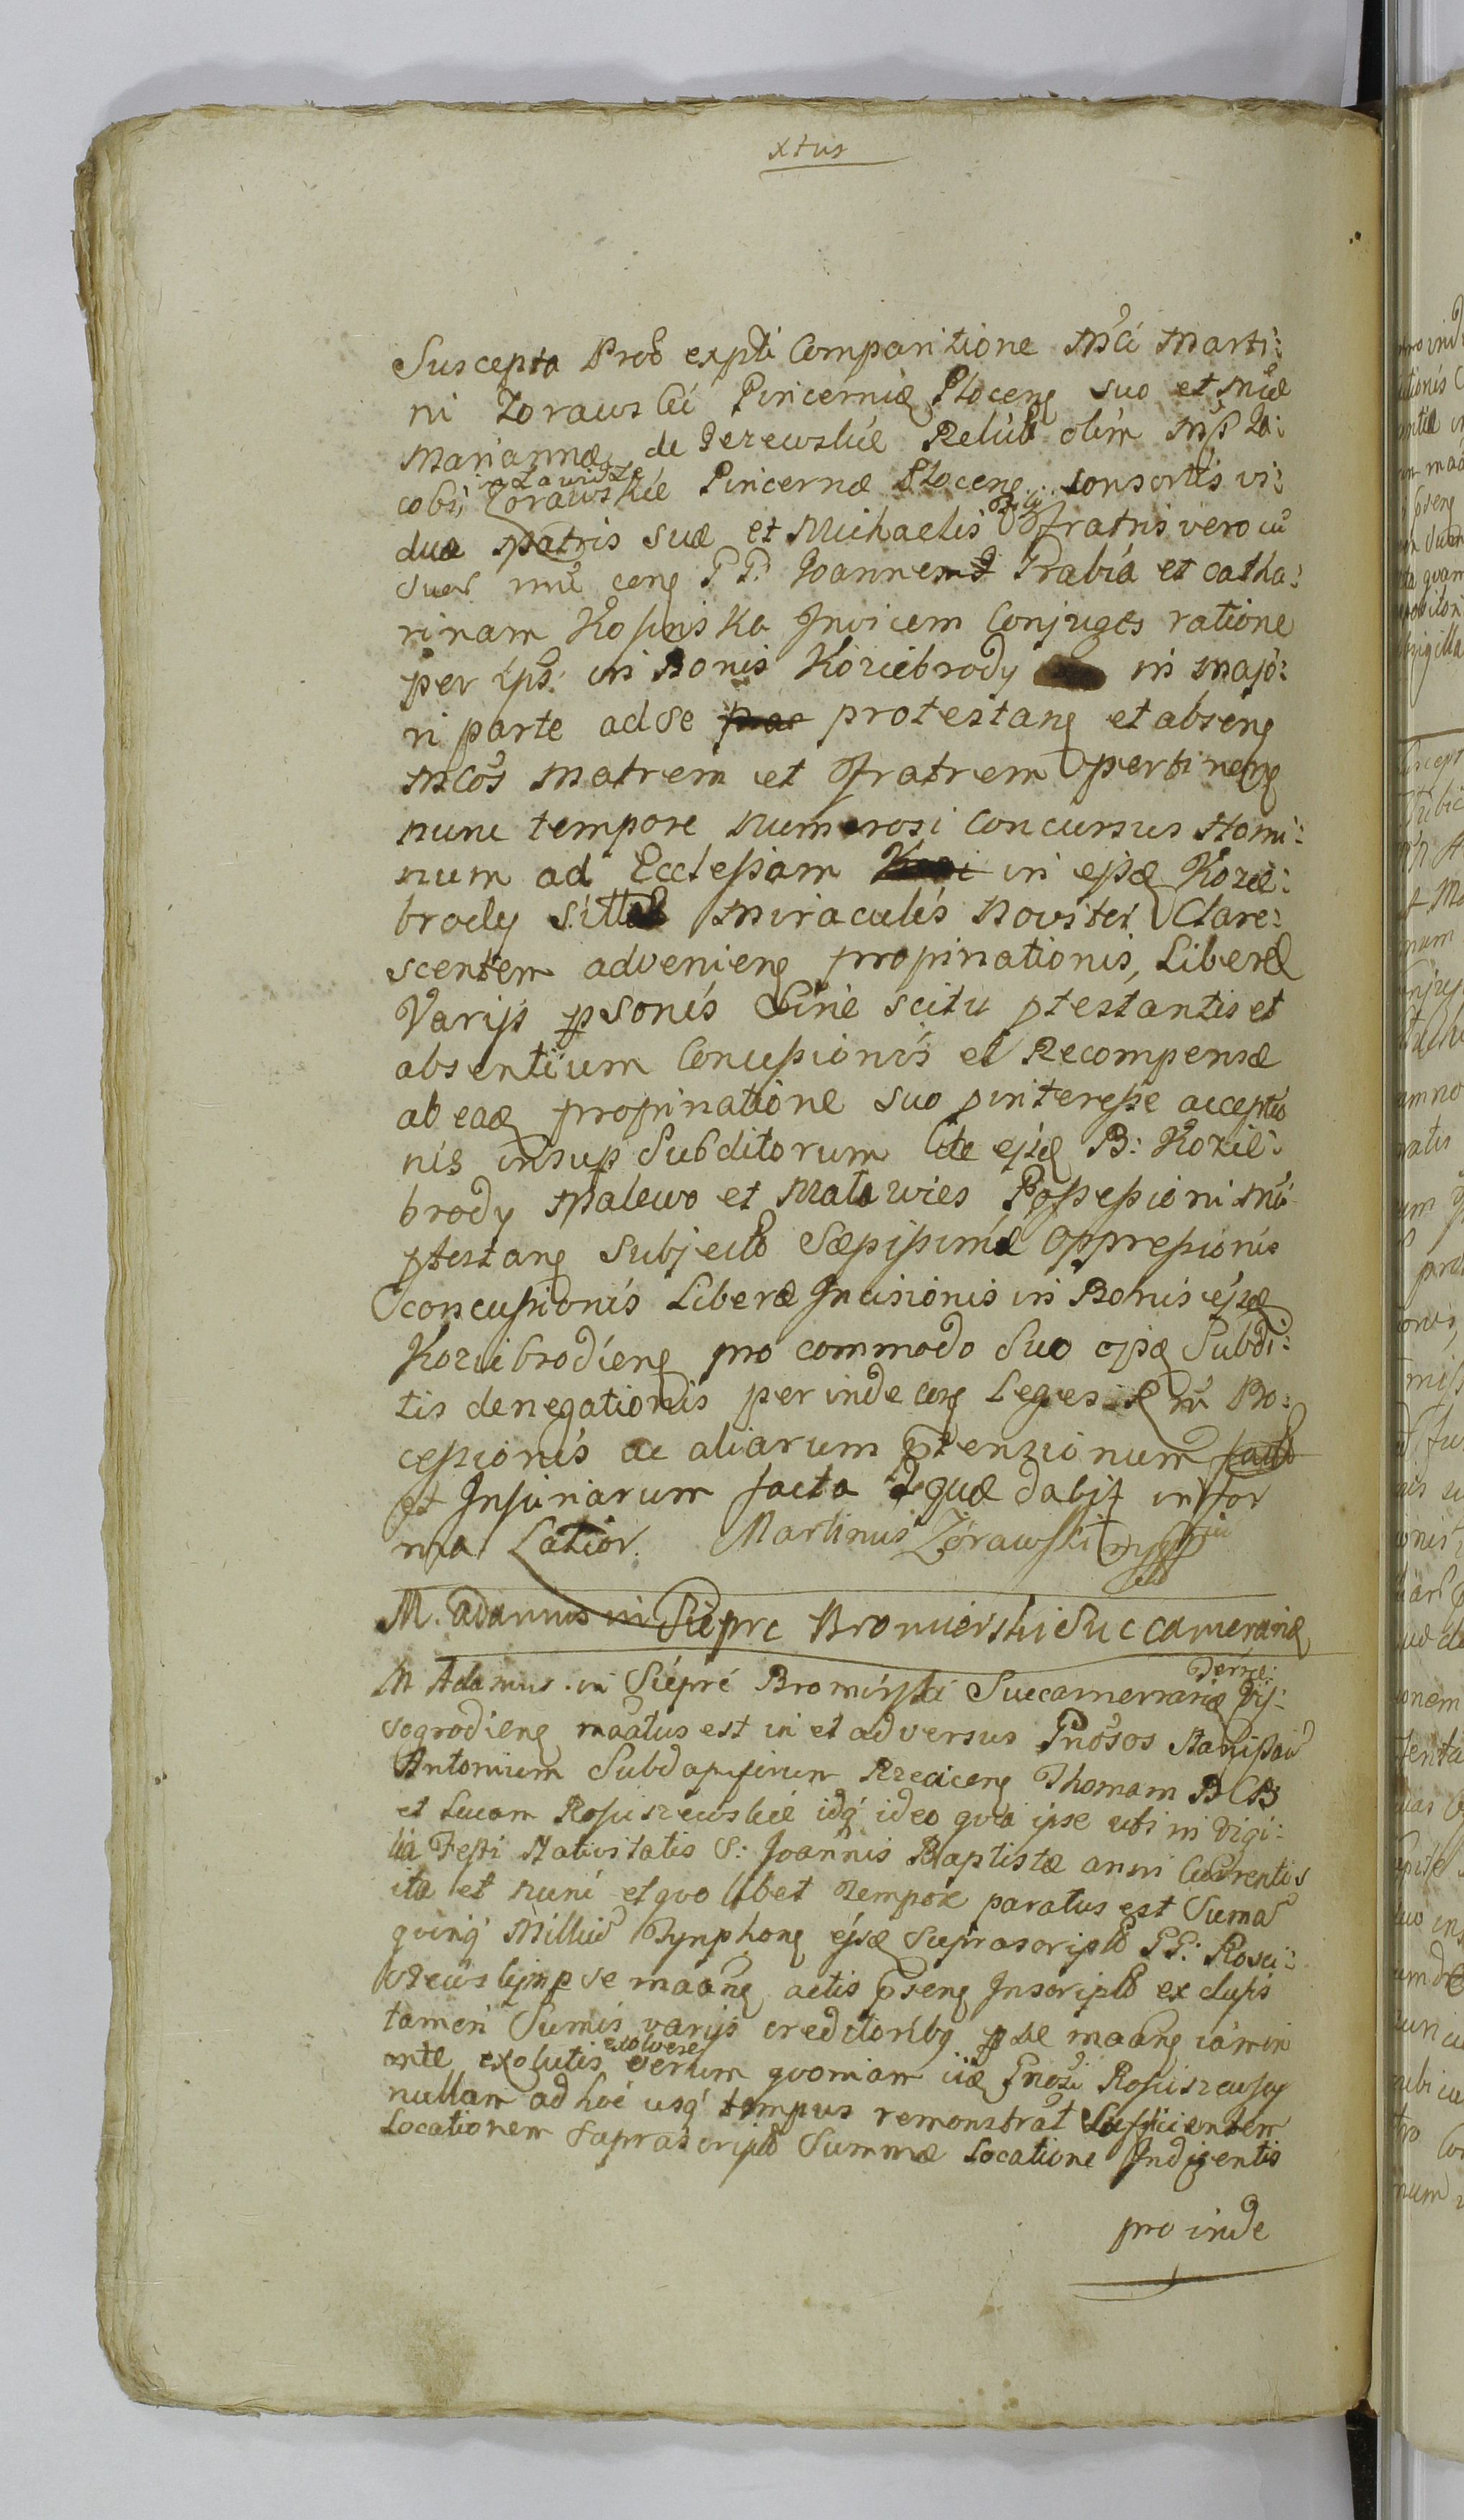 xtus
Suscepta Prob expti Comparitione Mci Marti:
ni Zorawski Pincernię Plocenę suo et Mcae
Mariannæ de Jezewskie Relictæ olim Mfi Ja:
a Lawidze
cobi Zorawskie Pincernæ Plocenę consortis vi:
duæ Matris suæ et Michaelis fratris vero
suor nně conę P P. Joannem Prabia et Catha:
rinam Kosinska Invicem Conjuges ratione
per ips: in Bonis Koziebrody in majo:
ri parte ad se protestanę et absenę
Mcos Matrem et Fratrem pertinenę
nunc tempore numerosi concursus Homi:
num ad Ecclesiam in ejsdę Kozie:
brody sittæ Miraculis Noviter Clare:
scentem advenienę propinationis, Liberæ
Varijs psonis Sine scitu ptestantis et
absentium Concussionis et Recompensæ
ab eadę propinatione suo pinteresse acceptio
nis insup Subditorum de ejsdę B: Kozie:
brody Malewo et Mala wies Possessioni Mci
ptestanę subjecto Sæpissimæ Oppressionis
concussionis Liberæ Incisionis in Bonis ejsdę
Koziebrodienę pro commodo suo ejsdę Subdi:
tis denegationis perinde conę Leges Po:
cessionis ac aliarum ptensionum
et Injuriarum facta quæ dabit in for
ma Latior. Martinus Zorawski mpp
M. Adamus in Siepre Bromierski Succamerarię
M Adamus in Siepré Bromirski Succamerarię Terræ: Vis:
sogrodienę maatus est in et adversus Gnosos Stanislaū
Antonium Subdapiferum Rzeczicenę Thomam B B
et Lucam Rosciszewskie idq ideo qvia ipse uti in Vigi:
lia Festi Nativitatis S: Joannis Baptistæ anni Currentis
ita et nunc et qvo libet tempore paratus est Sumā
qvinq Milliū Tynphonę ejsdę suprascripto PP: Rosci:
szewskimp se maanę actis psenę Inscripto exclusis
tamen Sumis varijs creditoribę p se maanę iam in
exolvere
ante exolutis verum qvoniam iidę Gnosi Rosciszewscy
nullam ad hoc usq tempus remonstrat Sufficientem
Locationem suprascripto Summæ Locatione Indigentis
pro inde